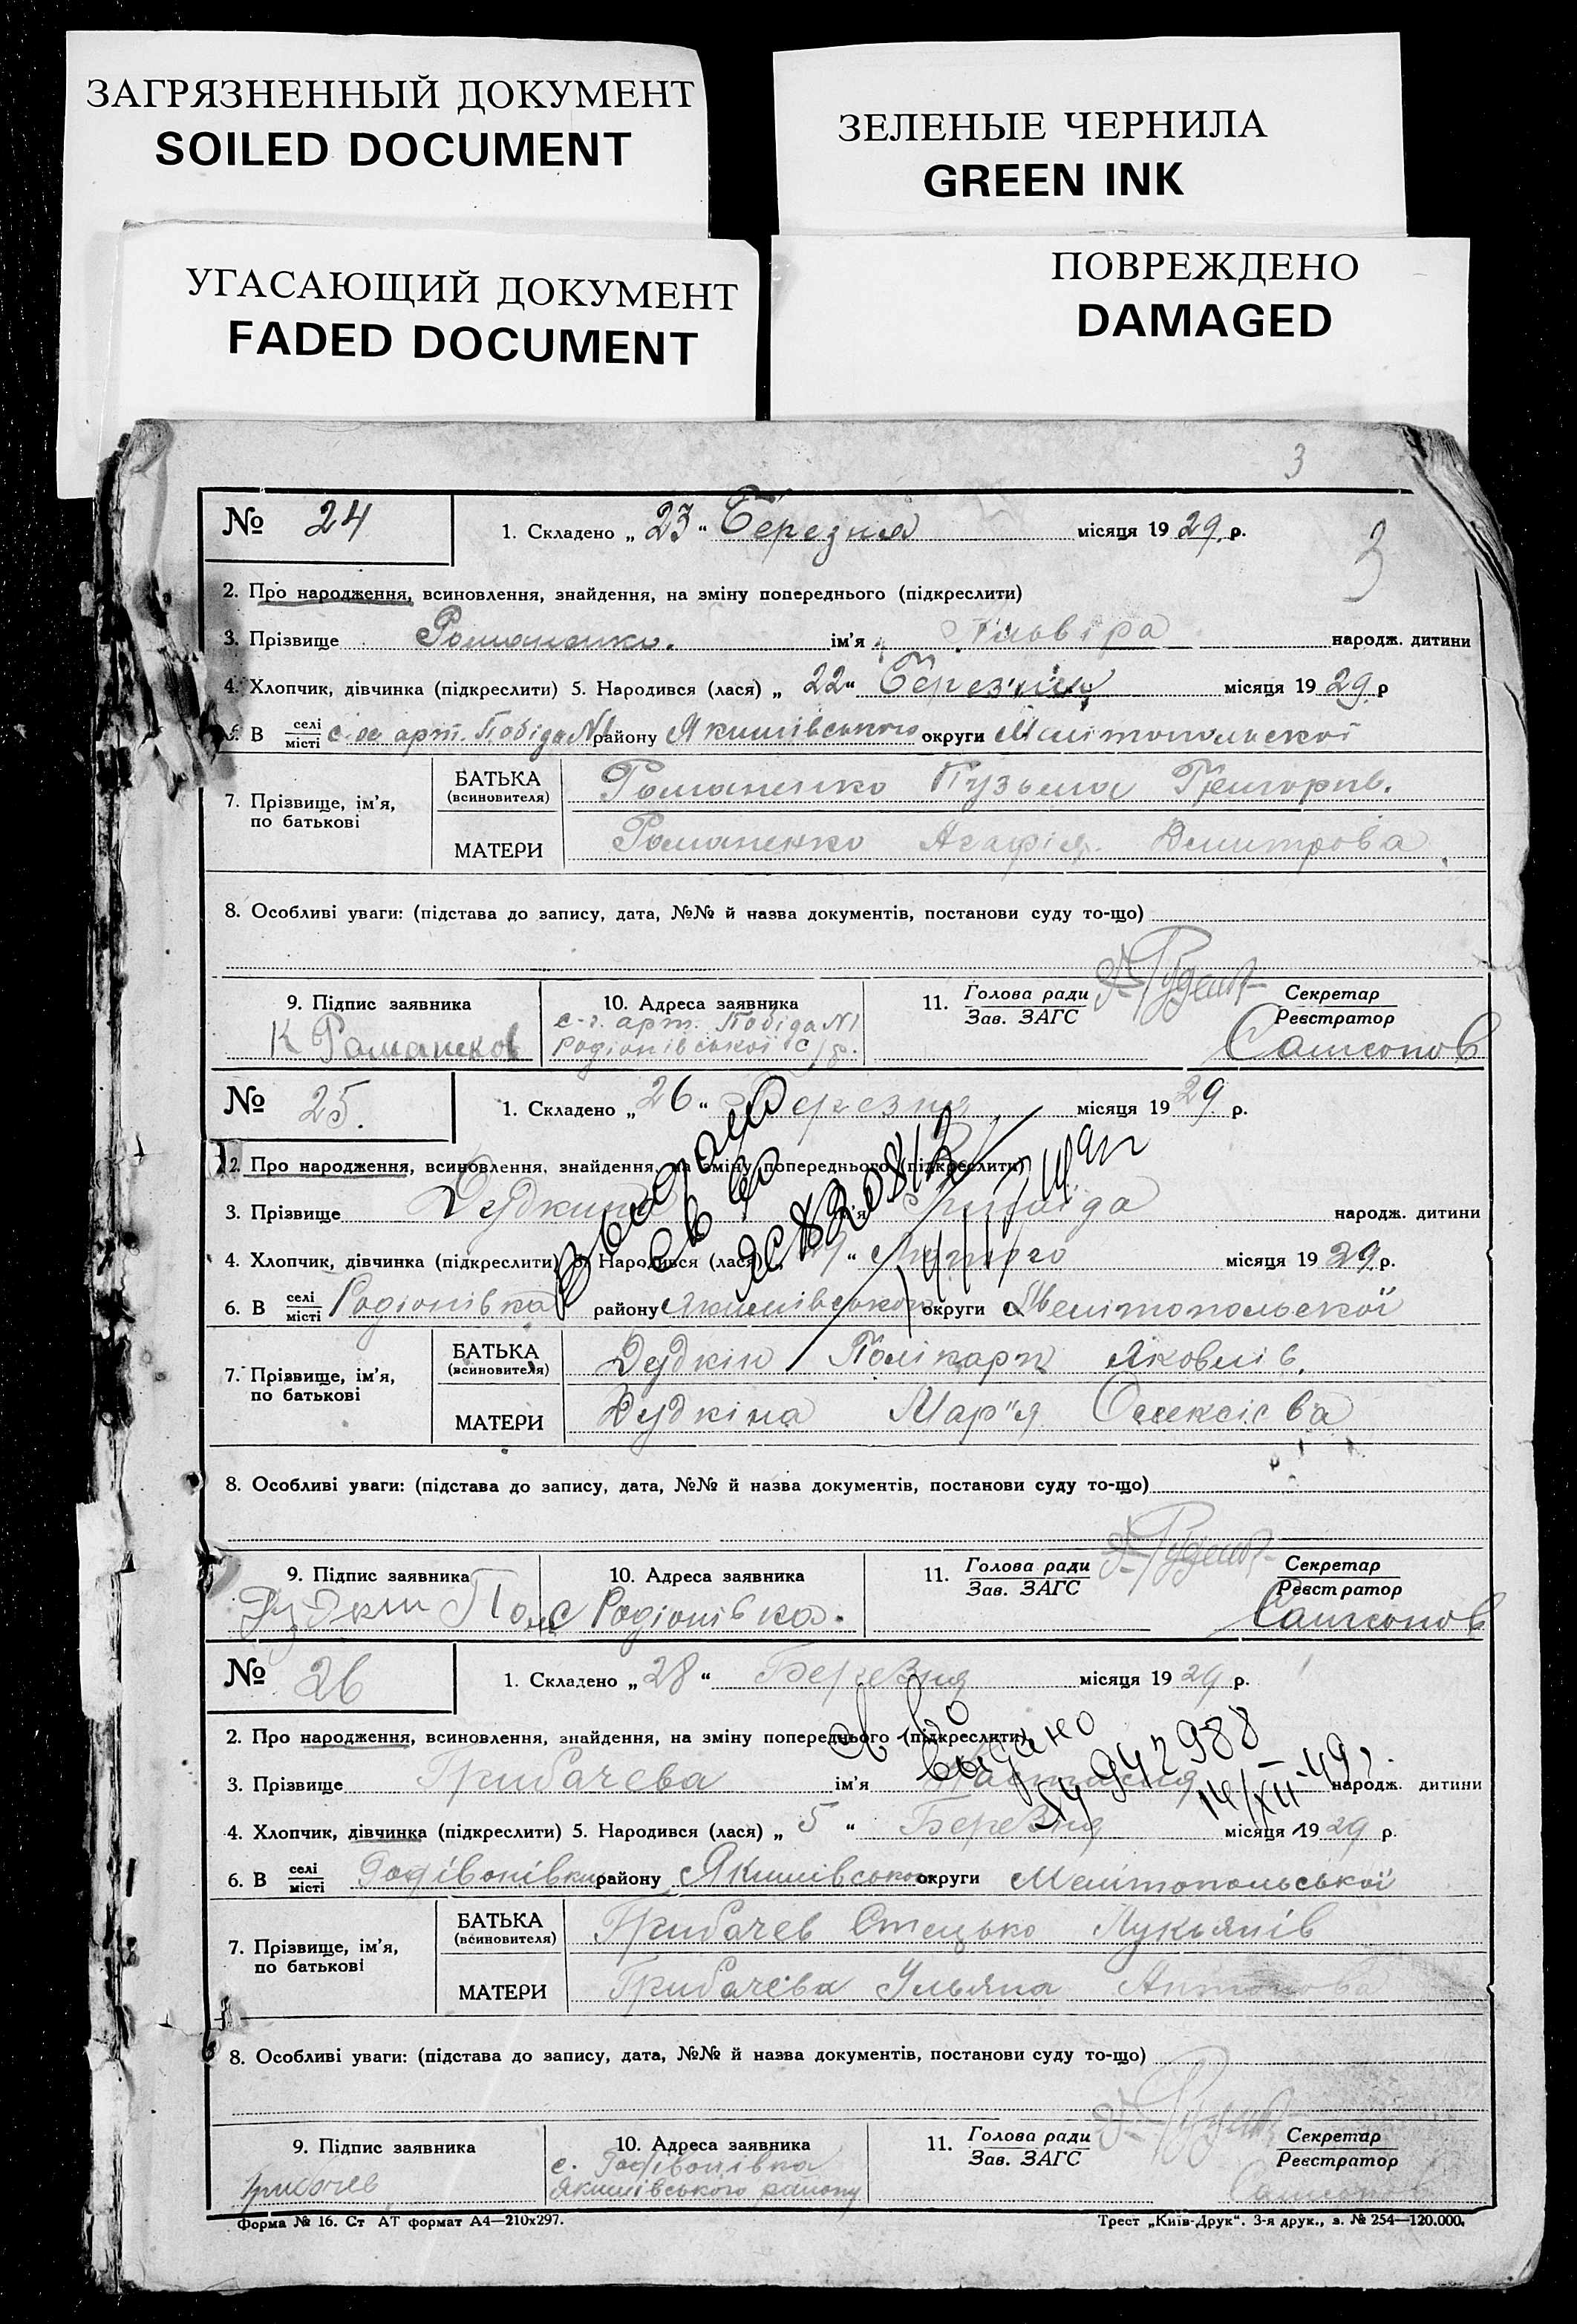 ЗАГРЯЗНЕННЫЙ ДОКУМЕНТ
SOILED DOCUMENT
ЗЕЛЕНЫЕ ЧЕРНИЛА
GREEN INK
УГАСАЮЩИЙ ДОКУМЕНТ
FADED DOCUMENT
ПОВРЕЖДЕНО
DAMAGED
3
№ 24 1. Складено „ 23 “ Березня місяця 19 29 р.
3
2. Про народження, всиновлення, знайдення, на зміну попереднього (підкреслити)
3. Прізвище Романенко. ім'я народж. дитини
4. Хлопчик, дівчинка (підкреслити) 5. Народився (лася) „ 22 “ Березня місяця 19 29 р
6. В селі/місті с-г арт. Побіда №1 району Якимівського округи Мелітопольскої
7. Прізвище, ім'я, по батькові
БАТЬКА (всиновителя) Романенко Кузьма Григорів.
МАТЕРИ Романенко Агафія Дмитрова
8. Особливі уваги: (підстава до запису, дата, №№ й назва документів, постанови суду то-що)
9. Підпис заявника 10. Адреса заявника 11. Голова ради Секретар
Зав. ЗАГС Реєстратор
с-г. арт. Побіда №1
К Раманков Родіонівської с/р. Самсонов
№ 25. 1. Складено „ 26 “ Березня місяця 19 29 р.
2. Про народження, всиновлення, знайдення, на зміну попереднього (підкреслити)
3. Прізвище Дудкина ім'я народж. дитини
4. Хлопчик, дівчинка (підкреслити) 5. Народився (лася) Лютого місяця 19 29 р.
6. В селі/місті Родіонівка району Якимівського округи Мелітопольскої
7. Прізвище, ім'я, по батькові
БАТЬКА (всиновителя) Дудкін Полікарп Яковлів.
МАТЕРИ Дудкіна Мар"я Олексієва
8. Особливі уваги: (підстава до запису, дата, №№ й назва документів, постанови суду то-що)
9. Підпис заявника 10. Адреса заявника 11. Голова ради Секретар
Зав. ЗАГС Реєстратор
с Родіонівка. Самсонов
№ 26 1. Складено „ 28 “ Березня місяця 19 29 р.
2. Про народження, всиновлення, знайдення, на зміну попереднього (підкреслити)
3. Прізвище Грибачева ім'я народж. дитини
св во
выдано
942988
14/XII-49 г.
4. Хлопчик, дівчинка (підкреслити) 5. Народився (лася) „ 5 “ Березня місяця 19 29 р.
6. В селі/місті Родівонівки району Якимівського округи Мелітопольської
7. Прізвище, ім'я, по батькові
БАТЬКА (всиновителя) Грибачев Стецько Лукьянів
МАТЕРИ Грибачева Ульяна Антонова
8. Особливі уваги: (підстава до запису, дата, №№ й назва документів, постанови суду то-що)
9. Підпис заявника 10. Адреса заявника 11. Голова ради Секретар
Зав. ЗАГС Реєстратор
с. Родівонівка
Грибачев Якимівського району Самсонов
Форма № 16. Ст АТ формат А4—210х297. Трест „Київ-Друк“. 3-я друк., з. № 254—120.000.